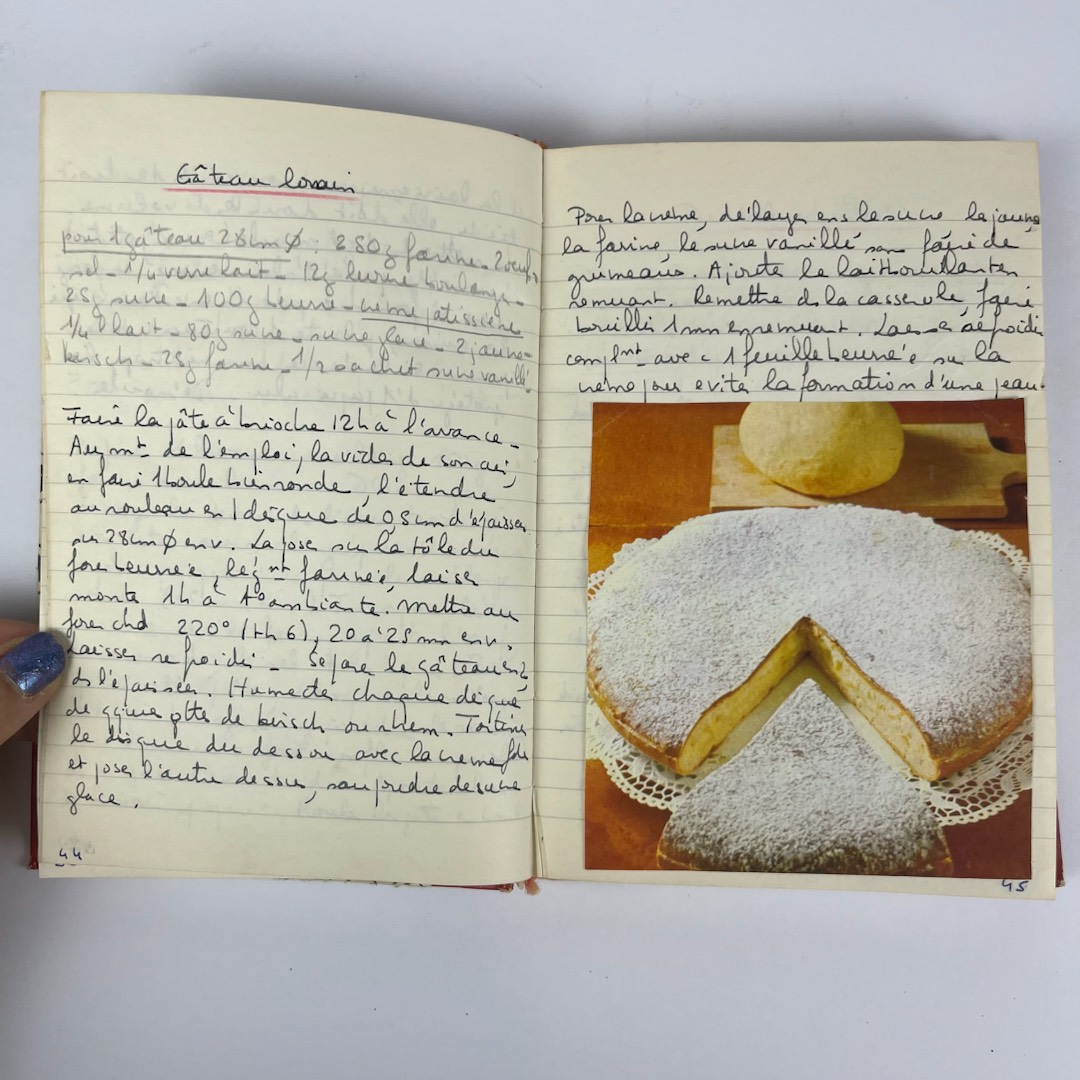 Gâteau lorrain
pour 1 gâteau 28cm Ø. 280g farine - 2 oeufs
sel - 1/4 verre lait - 12g levure boulanger -
25g sucre - 100g beurre - crème pâtissière
1/4 l lait - 80g sucre - sucre glace - 2 jaunes -
kirsch - 25g farine - 1/2 sachet sucre vanillé
Faire la pâte à brioche 12h à l'avance -
Au mt de l'emploi, la vider de son air,
en faire 1 boule bien ronde, l'étendre
au rouleau en 1 disque de 0,5 cm d'épaisseur
sur 28cm Ø env. La poser sur la tôle du
four beurrée, légmt farinée, laisser
monter 1h à t° ambiante. Mettre au
four chd 220° (th 6), 20 à 25 mn env.
Laisser refroidir - Séparer le gâteau en 2
ds l'épaisseur. Humecter chaque disque
de qques gttes de kirsch ou rhum. Tartiner
le disque du dessous avec la crème fde
et poser l'autre dessus, saupoudrer de sucre
glace.
44
Pour la crème, délayer ens le sucre les jaunes
la farine, le sucre vanillé sans faire de
grumeaux. Ajouter le lait bouillant en
remuant. Remettre ds la casserole, faire
bouillir 1 mn en remuant. Laisser refroidir
complmt avec 1 feuille beurrée sur la
crème pour eviter la formation d'une peau.
45